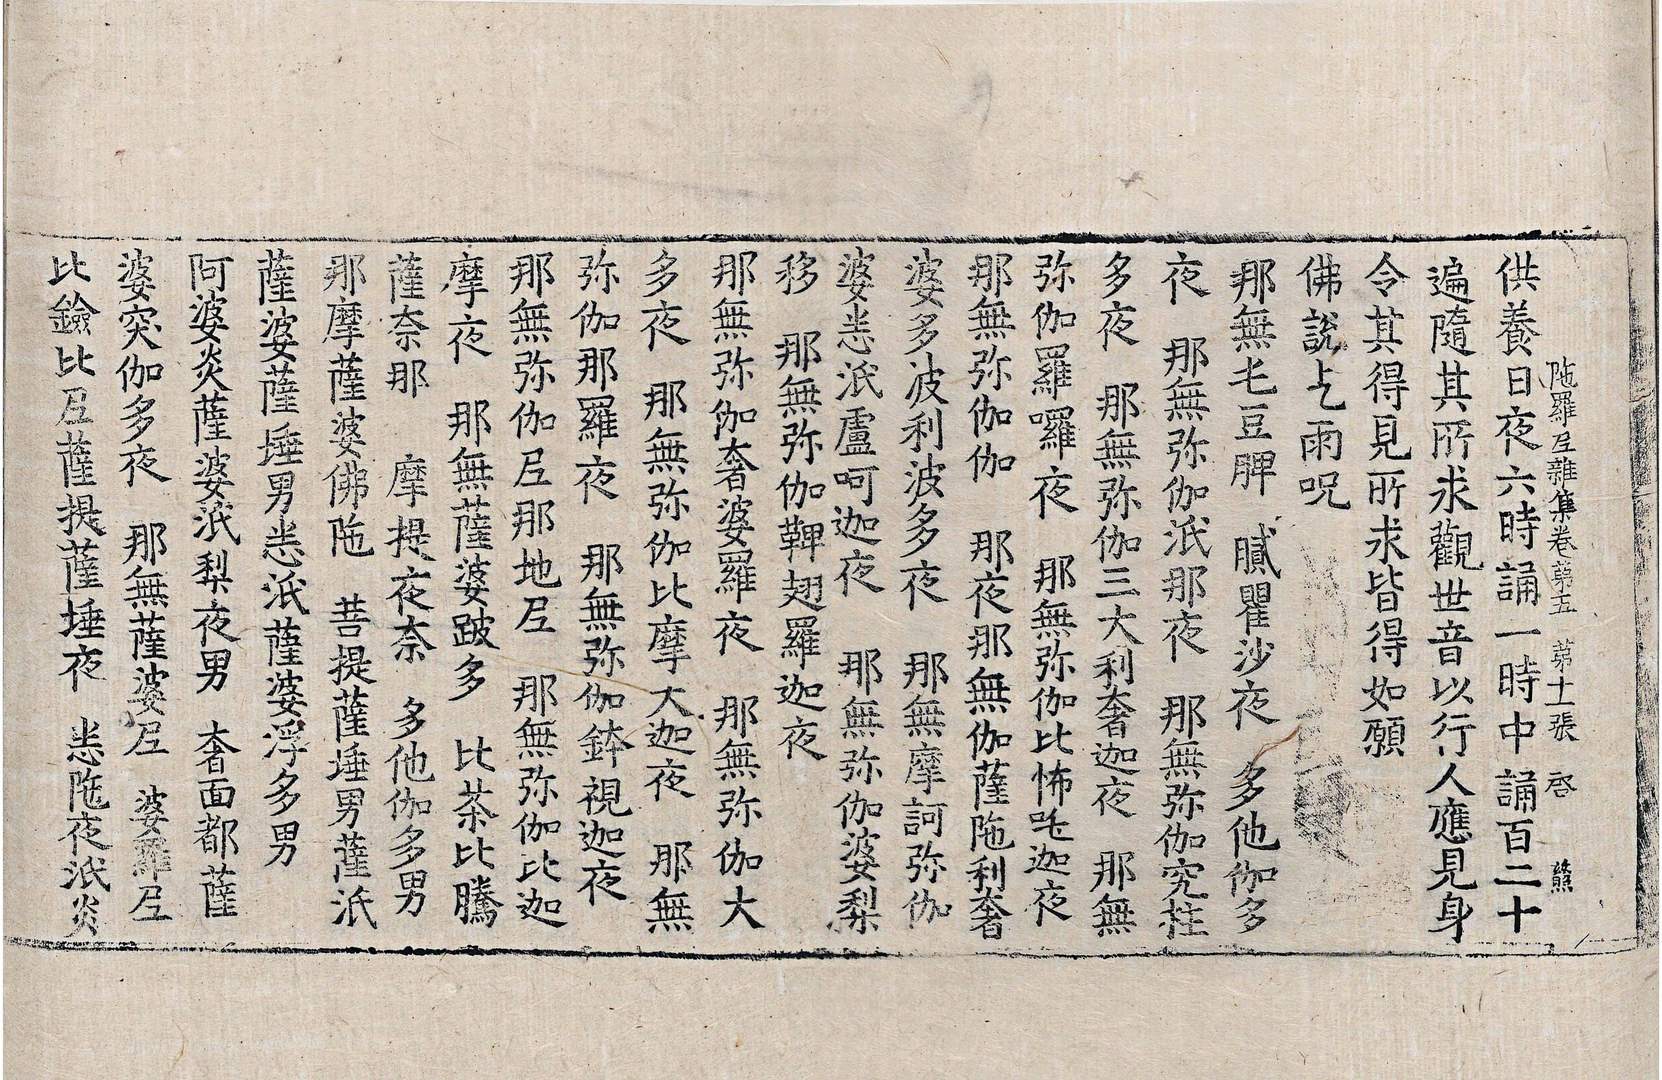 陁羅𡰱雜集卷第五 第十二張 啓
供養日夜六時誦一時中誦百二十
遍隨其所求觀世音以行人應見身
令其得見所求皆得如願
佛說乞雨呪
那無乇豆脾 膩瞿沙夜 多他伽多
夜 那無弥伽泜那夜 那無弥伽究拄
多夜 那無弥伽三大利奢迦夜 那無
弥伽羅囉夜 那無弥伽比怖吒迦夜
那無弥伽伽 那夜那無伽薩陁利奢
婆多波利波多夜 那無摩訶弥伽
婆恙泜盧呵迦夜 那無弥伽婆梨
移 那無弥伽鞞翅羅迦夜
那無弥伽奢婆羅夜 那無弥伽大
多夜 那無弥伽比摩大迦夜 那無
弥伽那羅夜 那無弥伽鉢視迦夜
那無弥伽𡰱那地𡰱 那無弥伽比迦
摩夜 那無薩婆跛多 比茶比騰
薩奈那 摩提夜奈 多他伽多男
那摩薩婆佛陁 菩提薩埵男薩泜
薩婆薩埵男恙泜薩婆浮多男
阿婆炎薩婆泜梨夜男 奢面都薩
婆突伽多夜 那無薩婆𡰱 婆羅𡰱
比鐱比𡰱薩提薩埵夜 恙陁夜泜炎